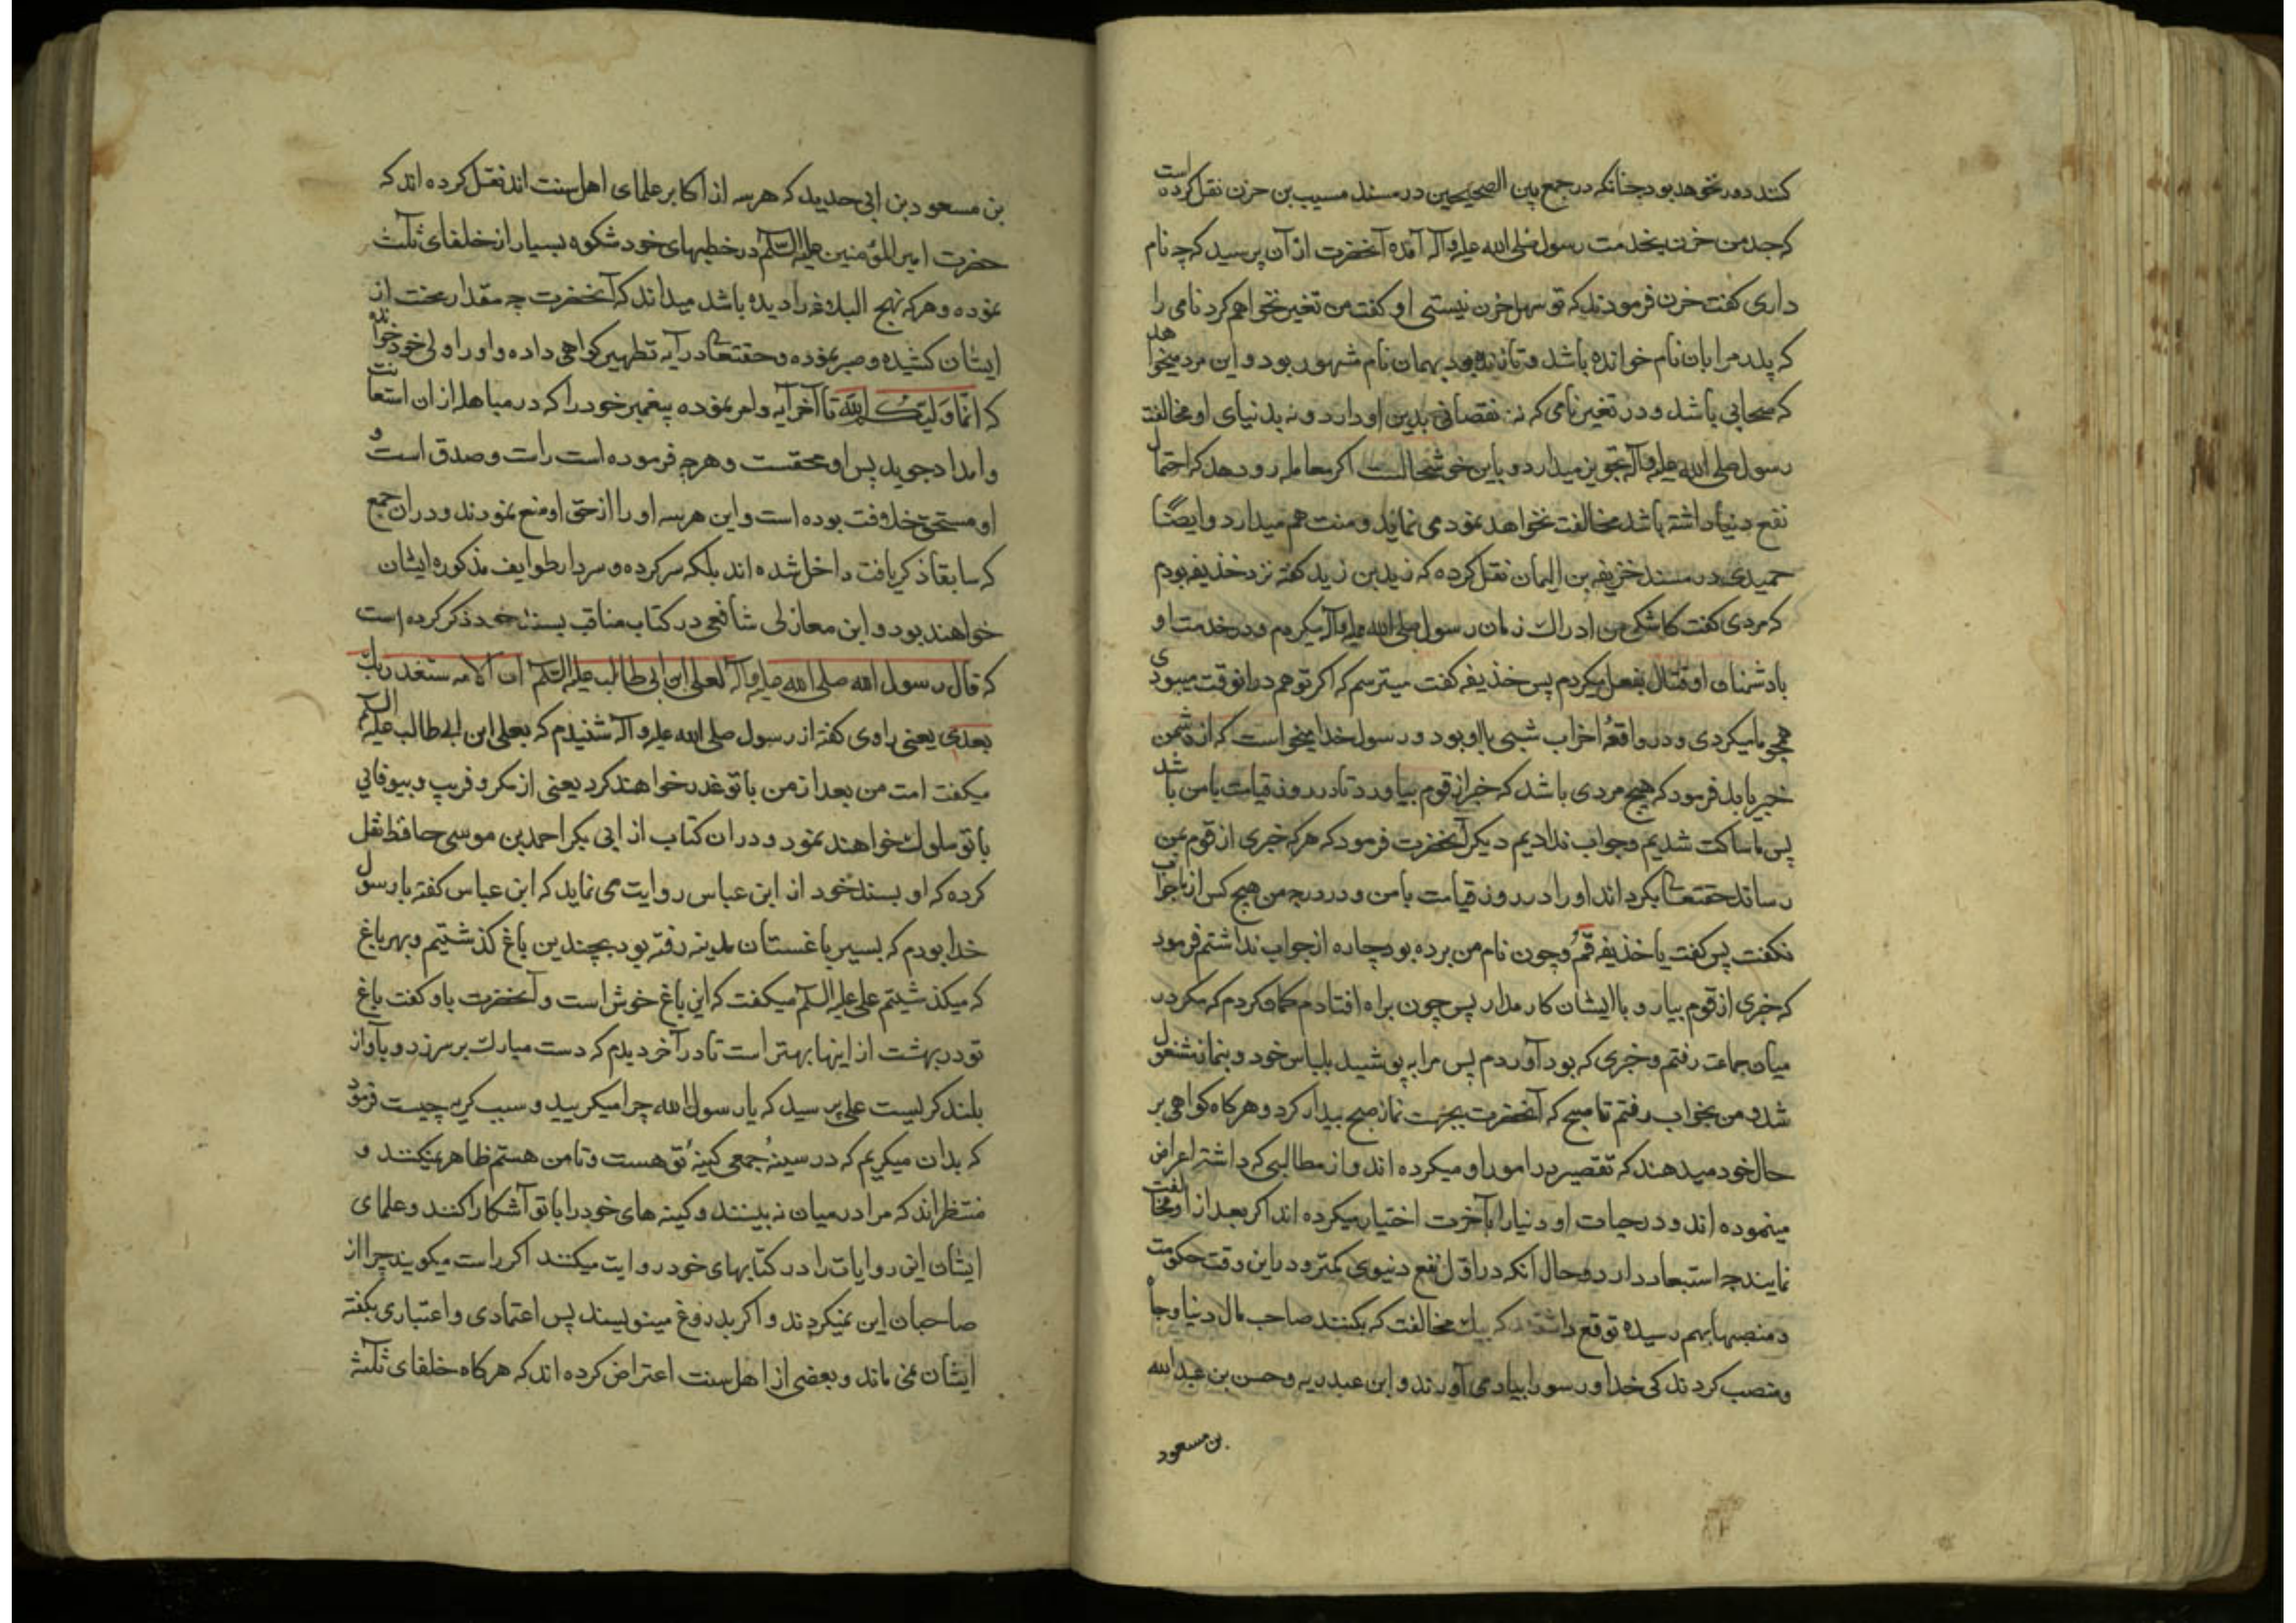 کنند دور نخواهد بود چنانکه در جمع بین الصحیحین در مسند مسیب بن حزن نقل کرده است
که جد من حزن بخدمت رسول صلی الله علیه وآله آمده آنحضرت از آن پرسید که چه نام
داری کفت حزن فرمودند که تو سهل حزن نیستی او کفت من تغیر نخواهم کرد نامی را
که پدر مرا بان نام خوانده باشد و تا زنده بود بهمان نام مشهور بود و این مرد میخواهد
که صحابی باشد و در تغیر نامی که نه نقصانی بدین او دارد و نه بدنیای او مخالفت
رسول صلی الله علیه وآله تجویز میدارد و باین خوشحالست اکر معامله رو دهد که احتمال
نفع دنیا داشته باشد مخالفت نخواهد نمود می نماید و منت هم میدارد و ایضًا
حمیدی در مسند خزیفه بن الیمان نقل کرده که زید بن زید کفته نزد خذیفه بودم
که مردی کفت کاشکی من ادراک زمان رسول صلی الله علیه وآله میکردم و در خدمت او
با دشمنان او قتال بفعل میکردم پس خذیفه کفت میترسم که اکر تو هم در انوقت میبودی
همچو ما میکردی و در واقعهٔ احزاب شبی با او بود و رسول خدا میخواست که از دشمن
خبر یابد فرمود که هیچ مردی باشد که خبر از قوم بیاورد تا در روز قیامت با من باشد
پس ما ساکت شدیم و جواب ندادیم دیکر آنحضرت فرمود که هرکه خبری از قوم بمن
رساند حقتعالی بکرداند او را در روز قیامت با من و در درجه من هیچ کس از ما جواب
نکفت پس کفت یا خذیفه قم و چون نام من برده بود چاره از جواب نداشتم فرمود
که خبری از قوم بیار و با ایشان کار مدار پس چون براه افتادم کمان کردم که مکر در
میان جماعت رفتم و خبری که بود آوردم پس مرا به پوشید بلباس خود و بنماز مشغول
شد و من بخواب رفتم تا صبح که آنحضرت بجهت نماز صبح بیدار کرد و هر کاه کواهی بر
حال خود میدهند که تقصیر در امور او میکرده اند و از مطالبی که داشته اعراض
مینموده اند و در حیات او دنیا را بآخرت اختیار میکرده اند اکر بعد از او مخالفت
نمایند چه استبعاد دارد و حال انکه در اول نفع دنیوی کمتر و در این وقت حکومت
و منصبها بهم رسیده توقع که بیک مخالفت که بکنند صاحب مال دنیا و جاه
و منصب کردند کی خدا و رسول را بیاد می آورند و ابن عبد ربه و حسن بن عبدالله
بن مسعود
بن مسعود بن ابی حدید که هر سه از اکابر علمای اهل سنت اند نقل کرده اند که
حضرت امیرالمؤمنین علیه السلم در خطبهای خود شکوه بسیار از خلفای ثلث
نموده و هرکه نهج البلاغه را دیده باشد میداند که آنحضرت چه مقدار محنت از
ایشان کشیده و صبر نموده و حقتعالی در آیه تطهیر کواهی داده و او را ولی خود خوانده
که انما ولیکم الله تا آخر آیه و امر نموده پیغمبر خود را که در مباهله از ان استعانت
و امداد جوید پس او محقست و هرچه فرموده است راست و صدق است و
او مستحق خلافت بوده است و این هر سه او را از حق او منع نمودند و در ان جمع
که سابقا ذکر یافت داخل شده اند بلکه سر کرده و سردار طوایف مذکوره ایشان
خواهند بود و ابن مغازلی شافعی در کتاب مناقب بسند خود ذکر کرده است
که قال رسول الله صلی الله علیه وآله لعلی ابن ابی طالب علیه السلم ان الامه ستغدر بک
بعدی یعنی راوی کفته از رسول صلی الله علیه وآله شنیدم که بعلی ابن ابی طالب علیه السلم
میکفت امت من بعد از من با تو غدر خواهند کرد یعنی از مکر و فریب و بیوفائی
با تو سلوک خواهند نمود و در ان کتاب از ابی بکر احمد بن موسی حافظ نقل
کرده که او بسند خود از ابن عباس روایت می نماید که ابن عباس کفته با رسول
خدا بودم که بسیر باغستان مدینه رفته بود بچندین باغ کذشتیم و بهر باغ
که میکذشتیم علی علیه السلم میکفت که این باغ خوش است و آنحضرت باو کفت باغ
تو در بهشت از اینها بهتر است تا در آخر دیدم که دست مبارک بر سر زد و بآواز
بلند کریست علی پرسید که یا رسول الله چرا میکریید و سبب کریه چیست فرمود
که بدان میکریم که در سینهٔ جمعی کینهٔ تو هست و تا من هستم ظاهر نمیکنند و
منتظراند که مرا در میان نه بینند و کینه های خود را با تو آشکارا کنند و علمای
ایشان این روایات را در کتابهای خود روایت میکنند اکر راست میکویند چرا از
صاحبان این نمیکردند و اکر بدروغ مینویسند پس اعتمادی و اعتباری بکفته
ایشان نمی ماند و بعضی از اهل سنت اعتراض کرده اند که هر کاه خلفای ثلثه